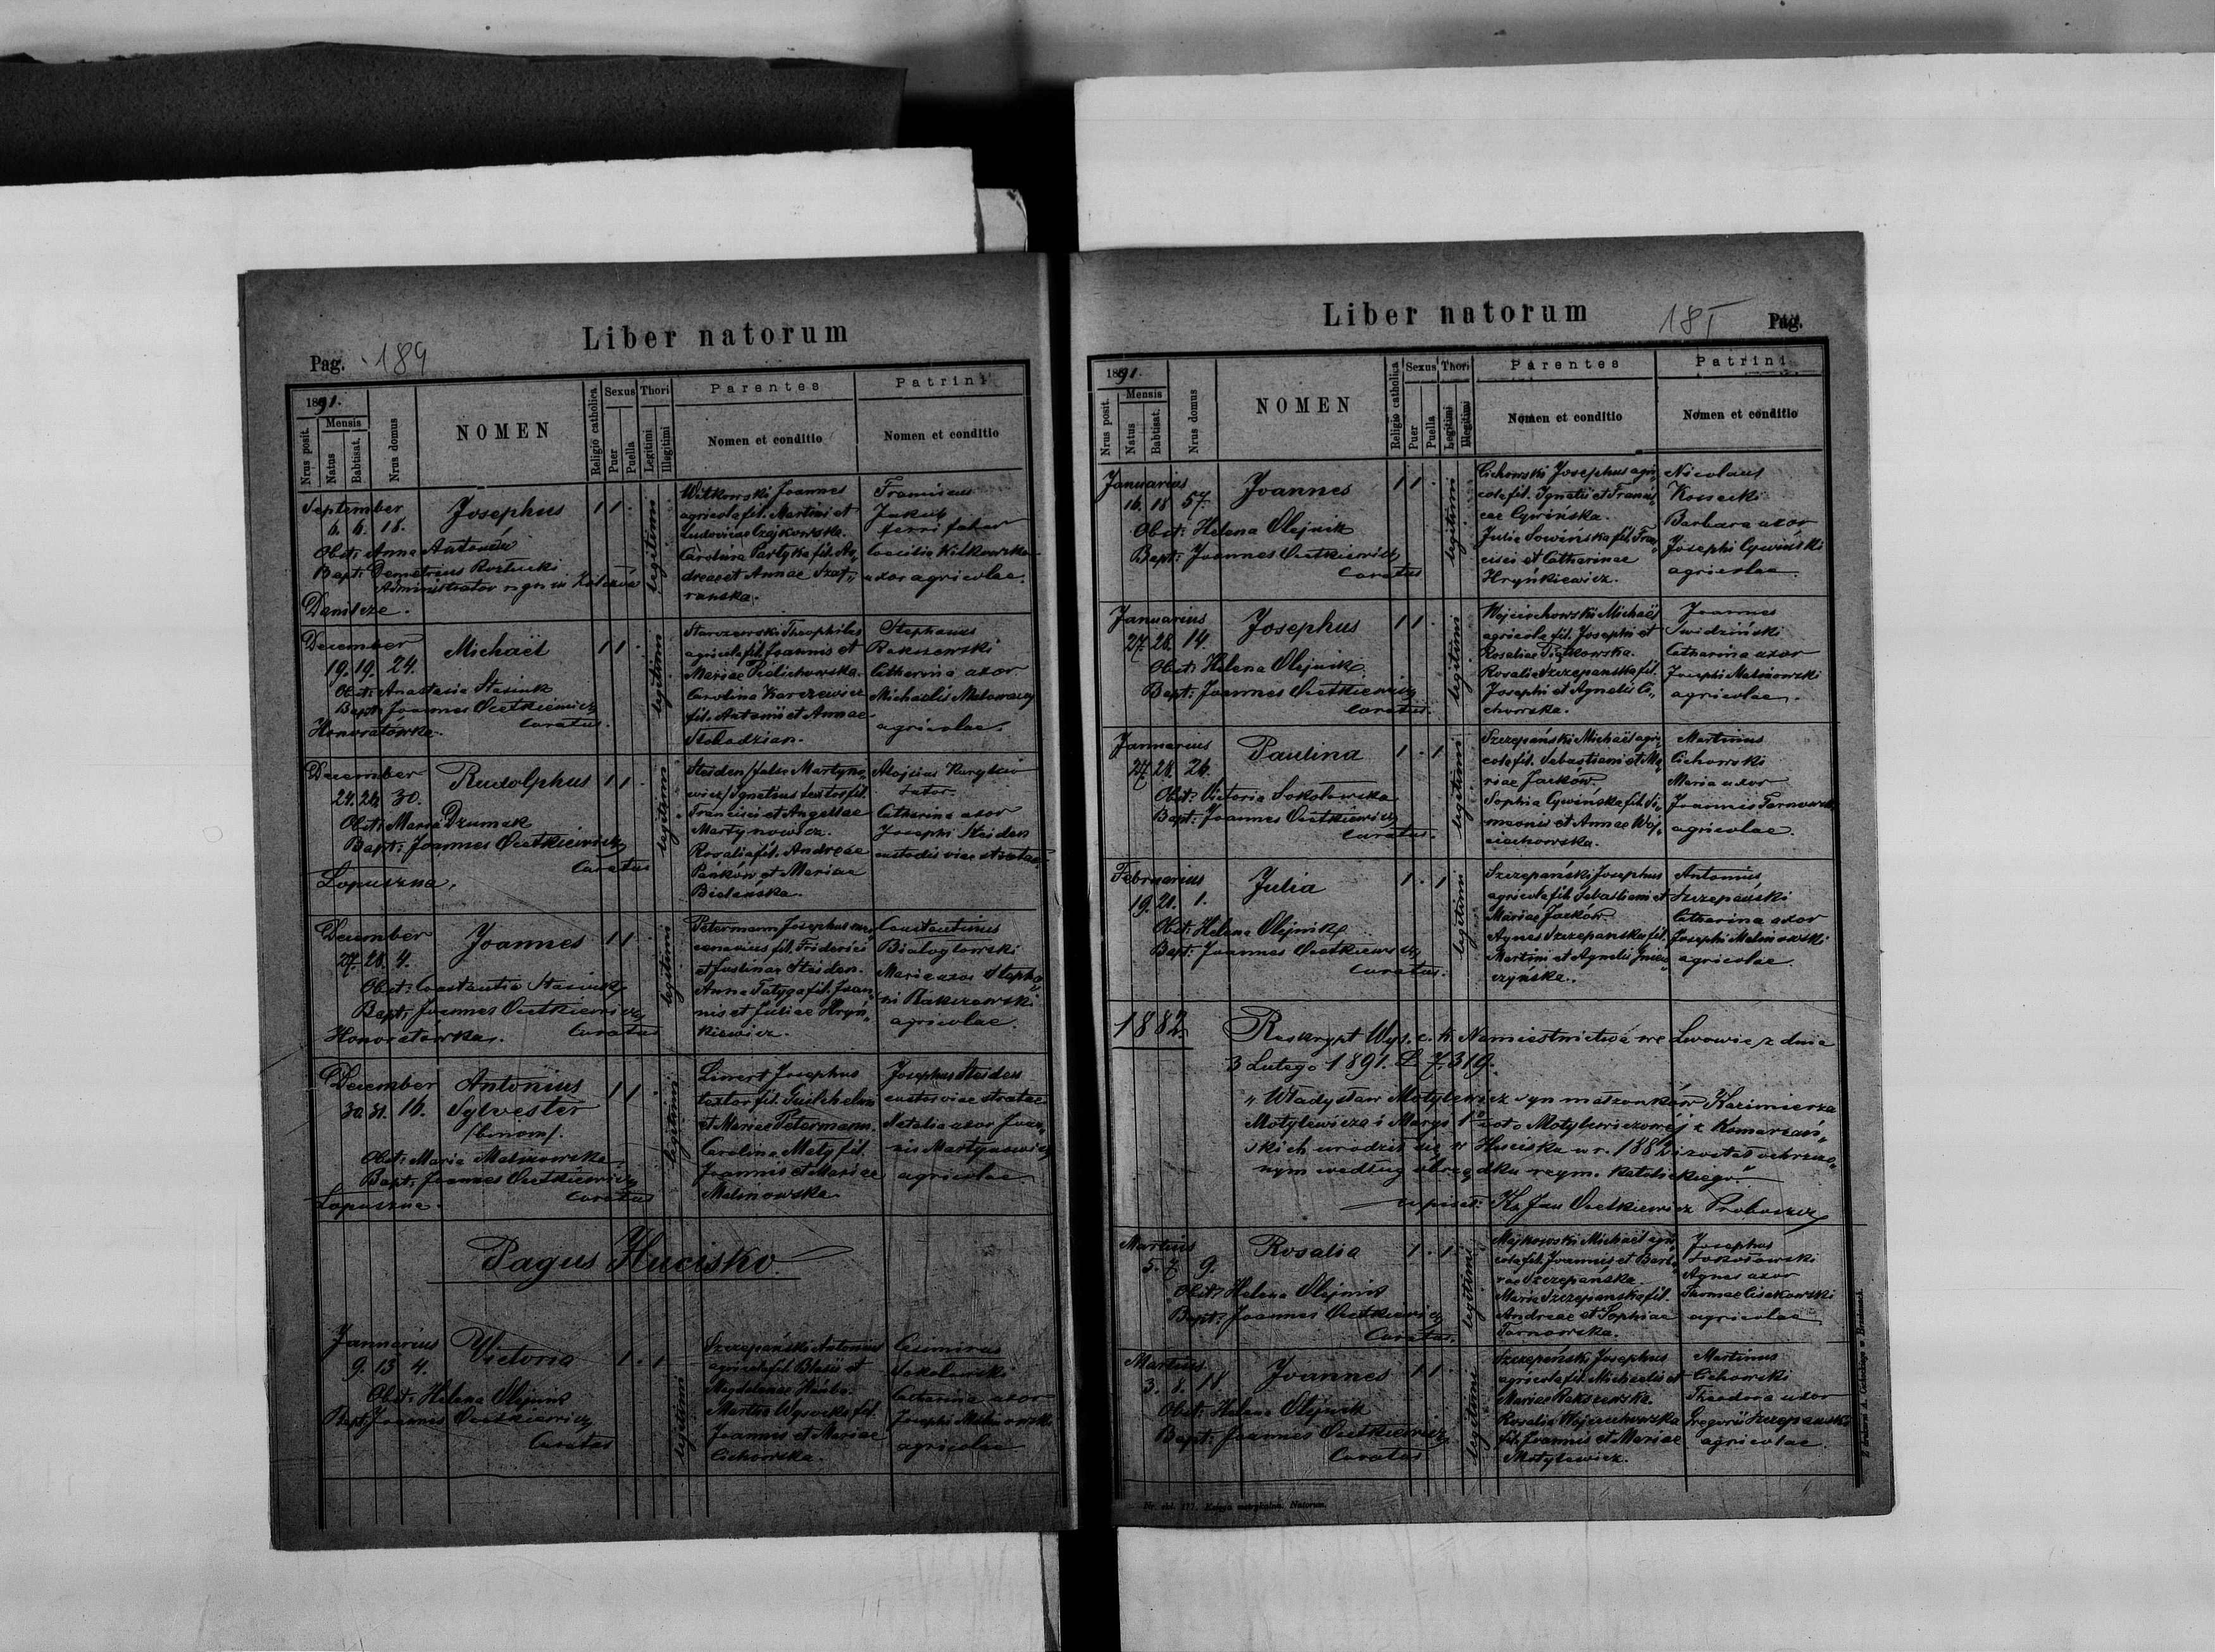 Liber natorum
Pag. 184
1891.
Nrus posit.
Mensis
Natus
Babtisat.
Nrus domus
NOMEN
Religio catholica
Sexus
Puer
Puella
Thori
Legitimi
Illegitimi
Parentes
Nomen et conditio
Patrini
Nomen et conditio
September
6. 6. 18.
Josephus
1 1
legitimi
Obst: Anna Antonów
Bapt: Demetrius
Administrator r. gr. in
Daniłcze.
Witkowski Joannes
agricola fil. Martini et
Ludovicae Czajkowska.
Carolina Partyka fil. An„
dreae et Annae Szaf„
rańska.
Franciscus
Jakub
ferri faber
Caecilia Witkowska
uxor agricolae.
December
19. 19. 24.
Michaël
1 1
legitimi
Obst: Anastasia Stasiuk
Bapt: Joannes Ocetkiewicz
Curatus.
Honoratówka.
Starzewski Theophilus
agricola fil. Joannis et
Mariae
Carolina Karczewicz
fil. Antonii et Annae
Stephanus
Rakszewski
Catharina uxor
Michaelis
agricolae.
December
24. 26. 30.
Rudolphus
1 1
legitimi
Obst: Maria Dzumak
Bapt: Joannes Ocetkiewicz
Curatus
Łopuszna.
Steiden /falso Martyno„
wicz/ Ignatius textor fil.
Francisci et Angelae
Martynowicz.
Rosalia fil. Andreae
Pańków et Mariae
Bielańska.
Alojsius
Catharina uxor
Josephi Steiden
custodis viae stratae.
December
27. 28. 4.
Joannes
1 1
legitimi
Obst: Constantia Stasiuk
Bapt: Joannes Ocetkiewicz
Curatus
Honoratówka.
Petermann Josephus
fil. Friderici
et Justinae Steiden.
Anna Tatyga fil. Joan„
nis et Juliae Hryń„
kiewicz.
Constantinus
Białogłowski
Maria uxor Stepha„
ni Rakszewski
agricolae.
December
30. 31. 16.
Antonius
Sylvester
/binom/.
1 1
legitimi
Obst: Maria Malinowska
Bapt: Joannes Ocetkiewicz
Curatus
Łopuszna.
Linert Josephus
textor fil. Guilhelmi
et Mariae Petermann.
Carolina Mały fil.
Joannis et Mariae
Malinowska.
Josephus Steiden
custos viae stratae
Natalia uxor Joan„
nis Martynowicz
agricolae
Pagus Hucisko.
Januarius
9. 13 4.
Victoria
1 . 1
legitimi
Obst: Helena Olejnik
Bapt: Joannes Ocetkiewicz
Curatus
Szczepański Antonius
agricola fil. Blasii et
Magdalenae
Martha Wysocka fil.
Joannis et Mariae
Cichowska.
Casimirus
Sokołowski
Catharina uxor
Josephi Malinowski
agricolae
Liber natorum
185 Pag.
1891.
Nrus posit.
Mensis
Natus
Babtisat.
Nrus domus
NOMEN
Religio catholica
Sexus
Puer
Puella
Thori
Legitimi
Illegitimi
Parentes
Nomen et conditio
Patrini
Nomen et conditio
Januarius
16. 18 57.
Joannes
1 1
legitimi
Obst: Helena Olejnik
Bapt: Joannes Ocetkiewicz
Curatus
Cichowski Josephus agri„
cola fil. Ignatii et Francis„
cae Cywińska.
Julia Sowińska fil. Fran„
cisci et Catharinae
Hryńkiewicz.
Nicolaus
Kossecki
Barbara uxor
Josephi Cywiński
agricolae.
Januarius
27. 28. 14.
Josephus
1 1
legitimi
Obst: Helena Olejnik
Bapt: Joannes Ocetkiewicz
Curatus.
Wojciechowski Michaël
agricola fil. Josephi et
Rosaliae Piątkowska.
Rosalia Szczepańska fil.
Josephi et Agnetis Ci„
chowska.
Joannes
Swidziński
Catharina uxor
Josephi Malinowski
agricolae.
Januarius
27. 28. 26.
Paulina
1 . 1
legitimi
Obst: Victoria Sokołowska
Bapt: Joannes Ocetkiewicz
Curatus.
Szczepański Michaël agri„
cola fil. Sebastiani et Ma„
riae Jacków.
Sophia Cywińska fil. Si„
meonis et Annae Woj„
ciechowska.
Martinus
Cichowski
Maria uxor
Joannis Tarnowski
agricolae.
Februarius
19. 21. 1.
Julia
1 . 1
legitimi
Obst: Helena Olejnik
Bapt: Joannes Ocetkiewicz
Curatus.
Szczepański Josephus
agricola fil. Sebastiani et
Mariae Jacków.
Agnes Szczepańska fil.
Martini et Agnetis
Antonius
Szczepański
Catharina uxor
Josephi Malinowski
agricolae.
1882.
Reskrypt Wys. c. k. Namiestnictwa we Lwowie z dnia
3 Lutego 1891. L. 7.319.
„Władysław Motylewicz syn małżonków Kazimierza
Motylewicza i Maryi 1º voto Motylewiczowéj z Komarzań„
skich urodził się w Hucisku w r. 1882 i został ochrzczo„
nym według obrządku rzym. katolickiego."
wpisał: Ks Jan Ocetkiewicz Proboszcz
Martius
5. 7 9.
Rosalia
1 . 1
legitimi
Obst: Helena Olejnik
Bapt: Joannes Ocetkiewicz
Curatus.
Majkowski Michaël agri„
cola fil. Joannis et Barba„
rae Szczepańska.
Maria Szczepańska fil.
Andreae et Sophiae
Tarnowska.
Josephus
Sokołowski
Agnes uxor
Thomae
agricolae
Martius
3. 8. 18
Joannes
1 1
legitimi
Obst: Helena Olejnik
Bapt: Joannes Ocetkiewicz
Curatus
Szczepański Josephus
agricola fil. Michaelis et
Mariae Rakszewska.
Rosalia Wojciechowska
fil. Joannis et Mariae
Motylewicz.
Martinus
Cichowski
Theodora uxor
Gregorii Szczepański
agricolae.
Nr. skl. 177. Księga metrykalna. Natorum.